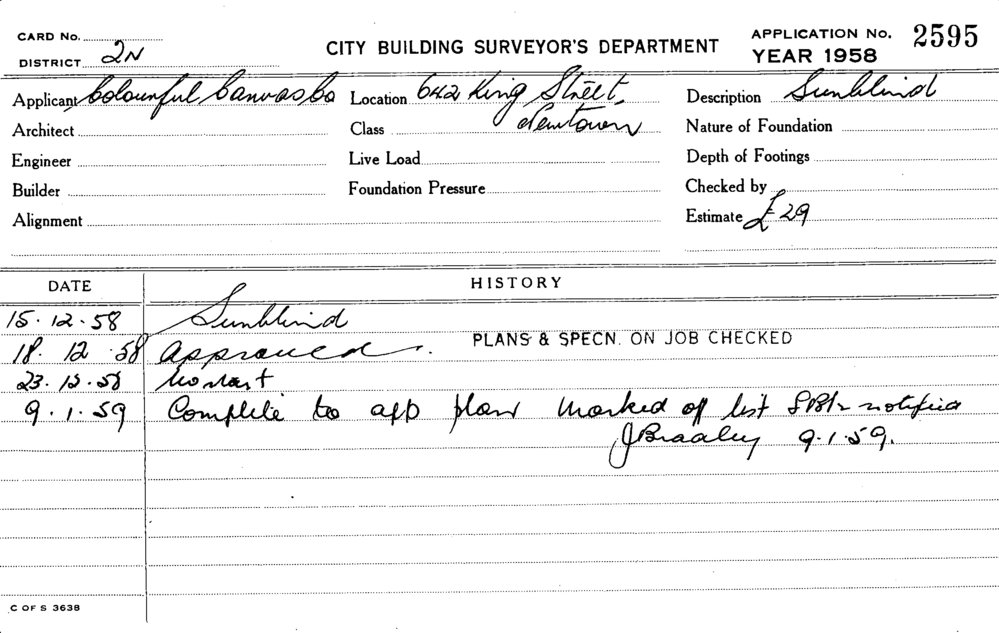 CARD No.
DISTRICT 2N
CITY BUILDING SURVEYOR'S DEPARTMENT
APPLICATION No. 2595
YEAR 1958
Applicant Colourful Canvas Co Location 642 King Street, Description Sunblind
Architect Class Newtown Nature of Foundation
Engineer Live Load Depth of Footings
Builder Foundation Pressure Checked by
Alignment Estimate £29
DATE HISTORY
15.12.58 Sunblind
18.12.58 Approved. PLANS & SPECN. ON JOB CHECKED
23.12.58 No start
9.1.59 Complete to app plan marked off list notified
JBradley 9.1.59.
C OF S 3638